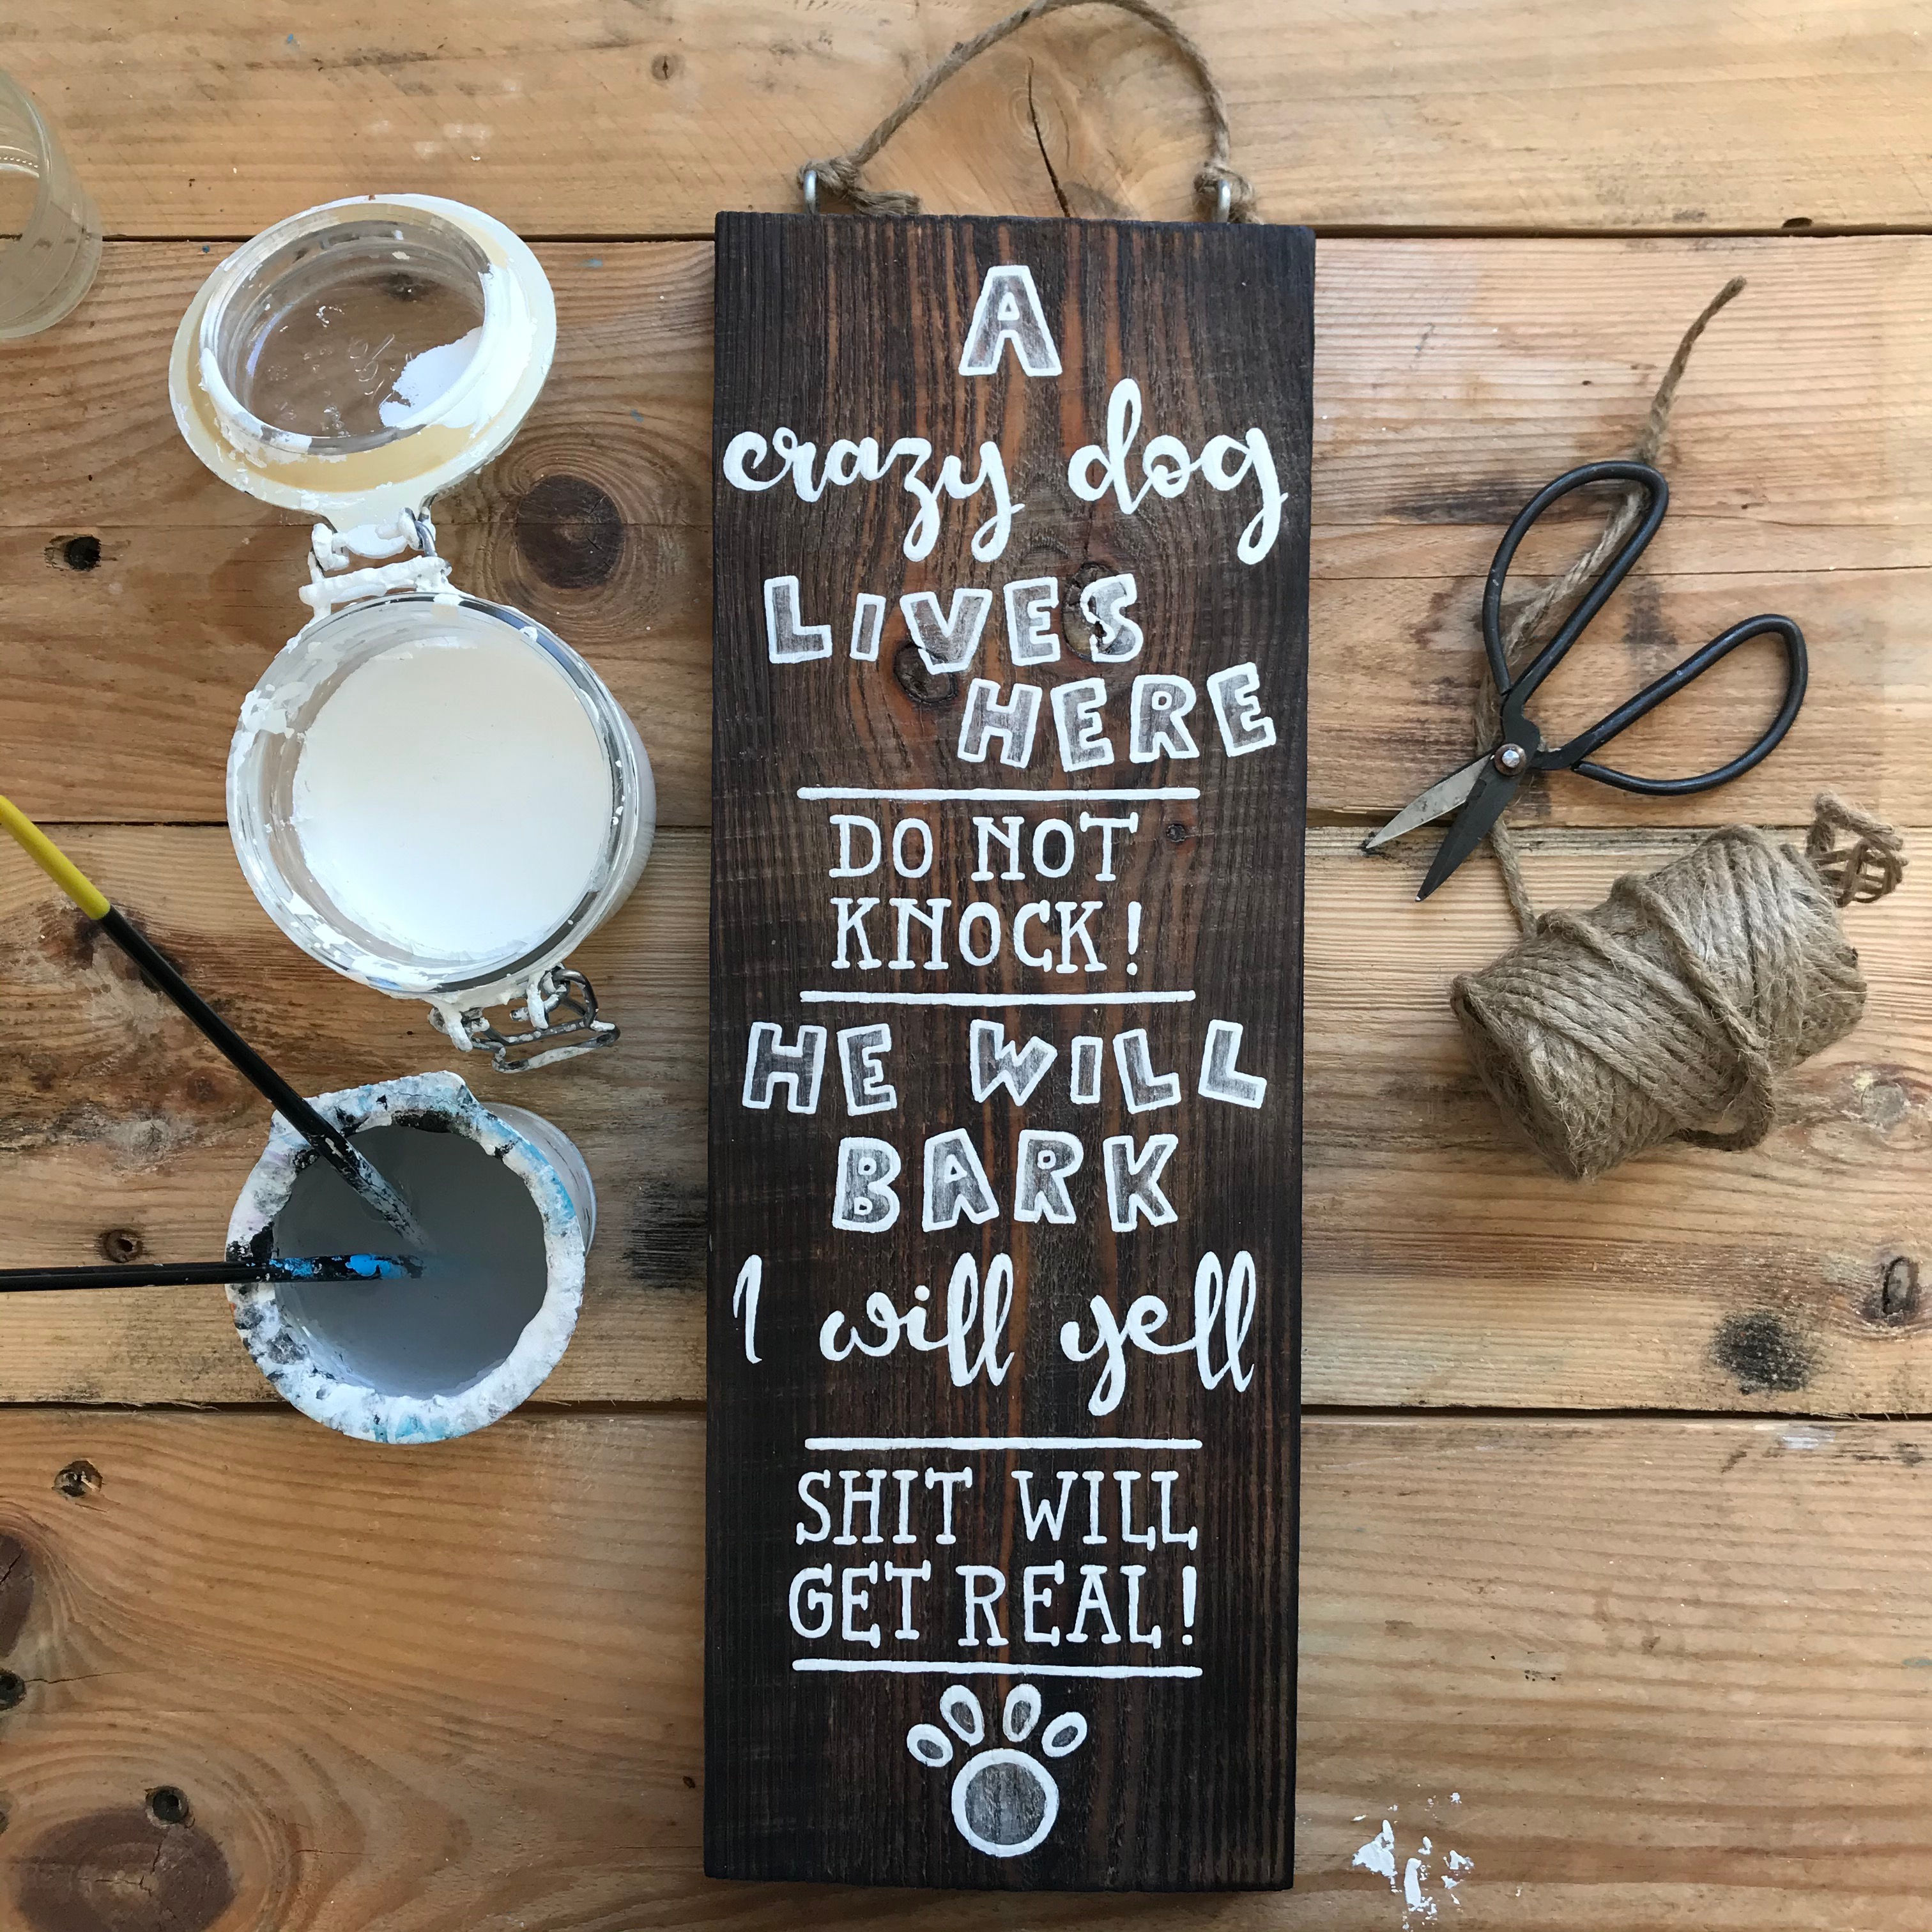 A
crazy dog
LIVES
HERE
DO NOT
KNOCK!
HE WILL
BARK
I will yell
SHIT WILL
GET REAL!